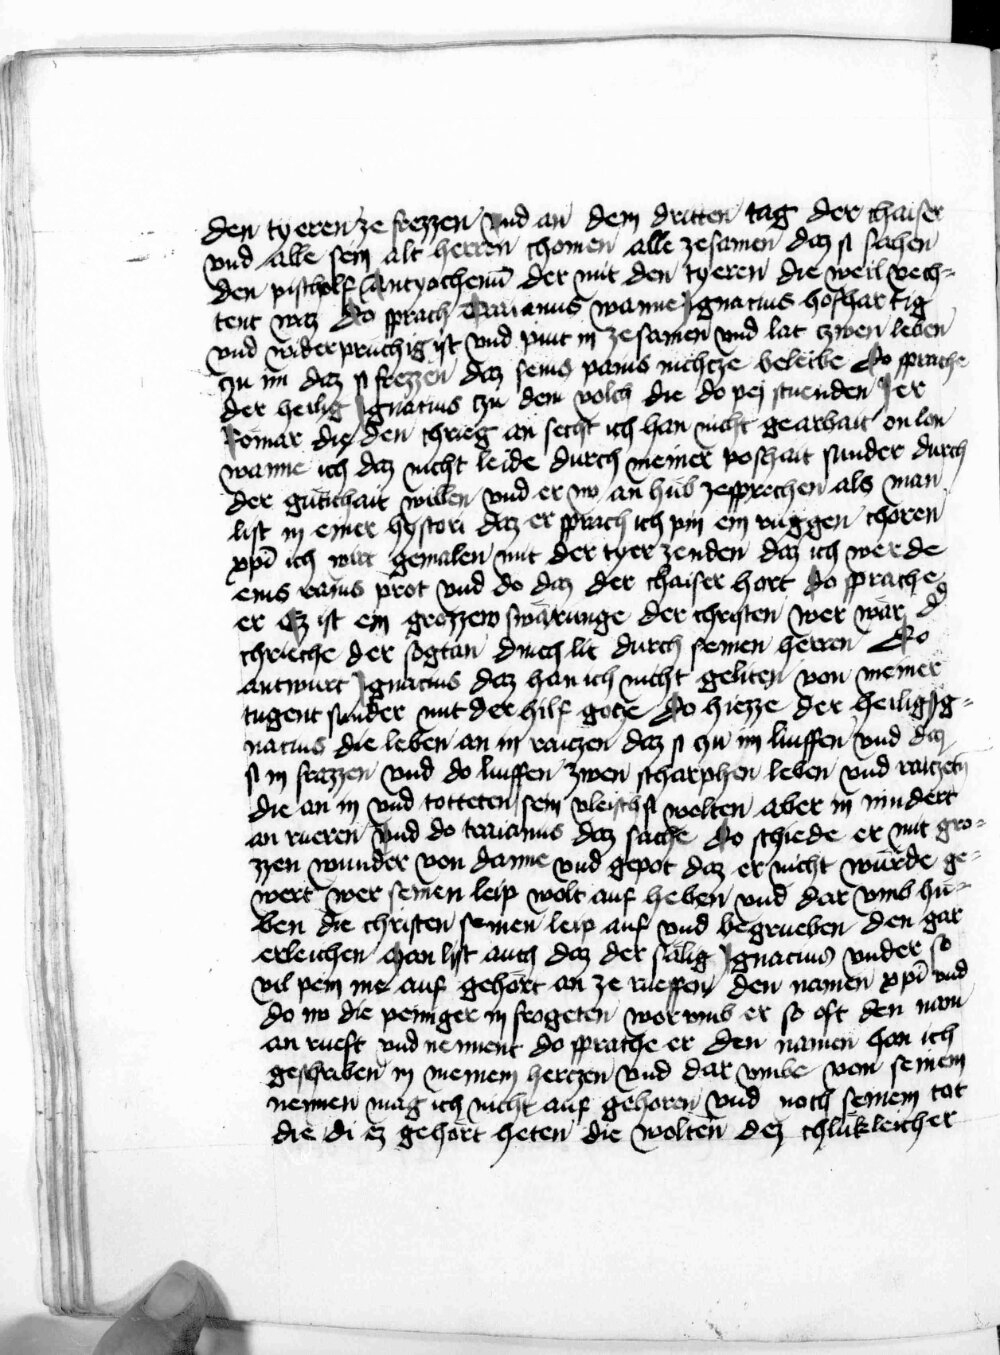 den tyeren ze frezzen Vnd an dem dritten tag der chaiser
vnd alle sein alt herren chomen alle zesamen daz si sachen
den pischolf Antyochenū der mit den tyeren die weil vech-
tent waz Do sprach Traianus wanne Ignatius hofhartig
vnd widerpruchig ist vnd pint in zesamen vnd lat zwen leben
zu im daz si frezzen daz seins panis nichcze beleibe Do sprache
der heilig Ignatius czu dem volch die do pej stuenden Ier
Romar die den chrieg an secht ich han nicht gearbait on lon
wanne ich daz nicht leide durch meiner poshait sunder durch
der gutichait willen vnd er nv an hub zesprechen als man
list in einer hystori daz er sprach ich pin ein ruggen choren
xp̄i ich wirt gemalen mit der tyer zenden daz ich werde
eins rains prot vnd do daz der chaiser hort do sprache
er Ez ist ein grozzew swärunge der christen wer wär d
chrieche der sogtan dinch lit durch seinen herren Do
antwurt Ignatius daz han ich nicht geliten von meiner
tugent sunder mit der hilf gotz Do hiezze der heilig Ig-
natius die leben an in raitzen daz si zu im liuffen vnd daz
si in frazzen vnd do liuffen zwen scharphen leben vnd raitzetn̄
die an in vnd totteten sein vleisch si wolten aber in nindert
an rueren Vnd do traianus daz sache Do schiede er mit gro-
zzen wunder von danne vnd gepot daz er nicht wurde ge-
wert wer seinen leip wolt auf heben vnd dar vmb hu-
ben die christen seinen leip auf vnd begrueben den gar
erleichen Man list auch daz der sälig Ignatius vnder so
vil pein nie auf gehort an ze rueffen den namen xp̄i vnd
do nv die peiniger in frogeten worvmb er so oft den nam
an rueft vnd nennent do sprache er den namen han ich
geschriben in meinem herczen vnd dar vmbe von seinem
nennen mag ich nicht auf gehoren vnd noch seinem tot
die di ez gehort heten die wolten dez chlukleicher